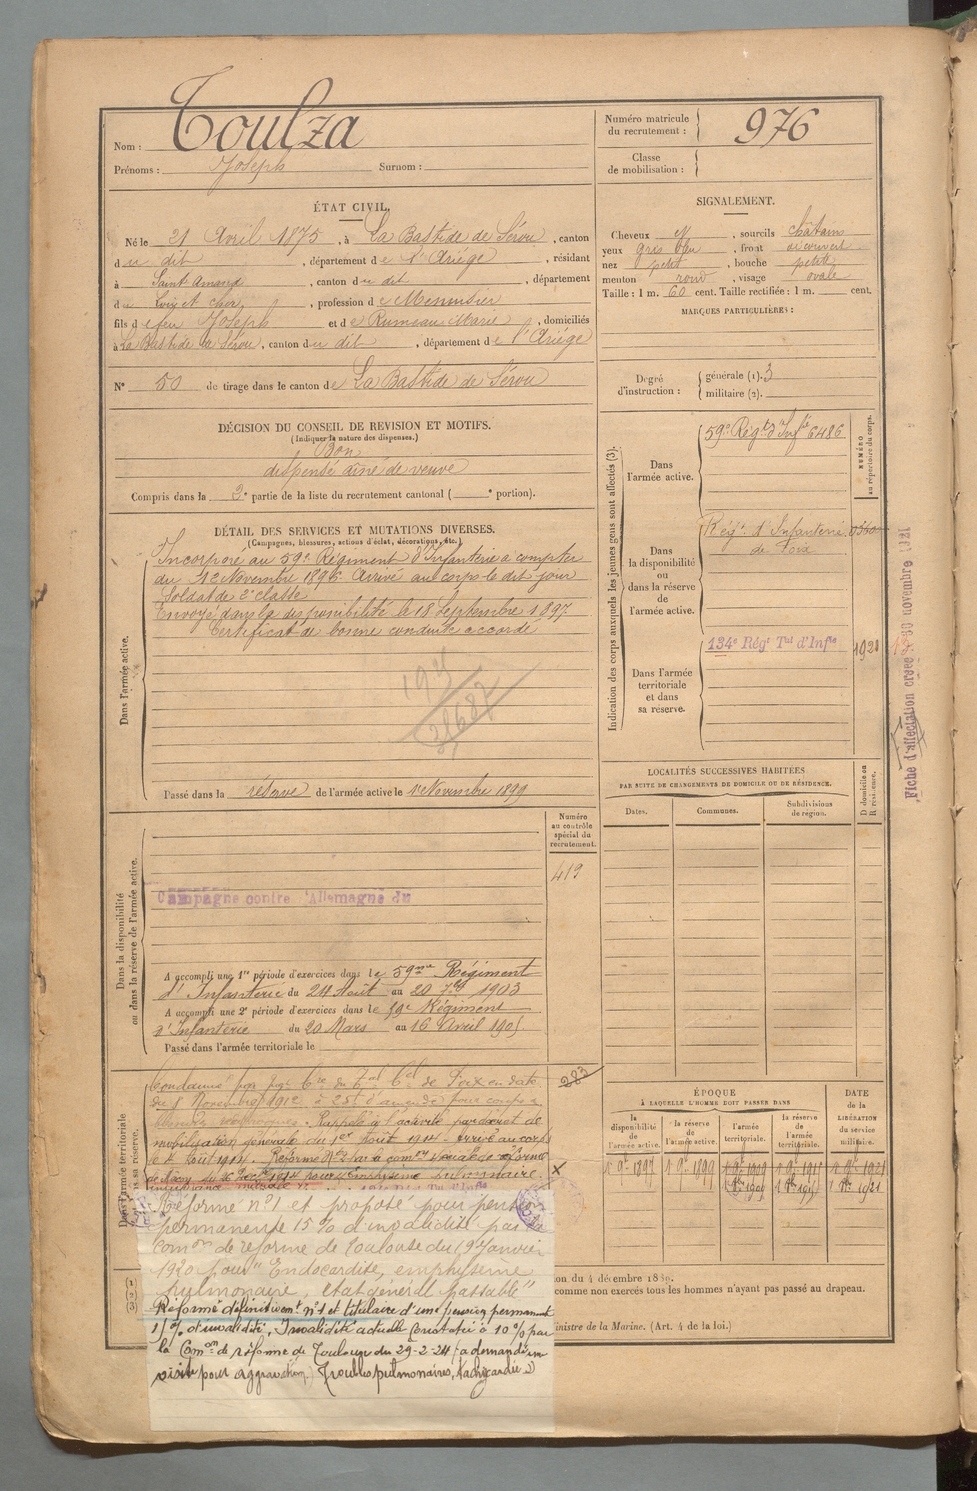 Nom : Toulza
Prénoms : Joseph Surnom :
Numéro matricule du recrutement : 976
Classe de mobilisation :
ÉTAT CIVIL.
Né le 21 Avril 1875, à La Bastide de Sérou, canton
du dit, département de l'Ariège, résidant
à Saint-Amand, canton du dit, département
du Loir et Cher, profession de Menuisier
fils de feu Joseph et de Rumeau Marie, domiciliés
à La Bastide de Sérou, canton du dit, département de l'Ariège
N° 50 de tirage dans le canton de La Bastide de Sérou
SIGNALEMENT.
Cheveux , sourcils châtains
yeux gris bleu, front découvert
nez petit, bouche petite
menton rond, visage ovale
Taille : 1 m. 60 cent. Taille rectifiée : 1 m. cent.
MARQUES PARTICULIÈRES :
Degré d'instruction : générale (1). 3
militaire (2).
DÉCISION DU CONSEIL DE REVISION ET MOTIFS.
(Indiquer la nature des dispenses.)
Bon
dispensé aîné de veuve
Compris dans la 2e partie de la liste du recrutement cantonal ( e portion).
DÉTAIL DES SERVICES ET MUTATIONS DIVERSES.
(Campagnes, blessures, actions d'éclat, décorations, etc.)
Dans l'armée active.
Incorporé au 59e Régiment d'Infanterie à compter
du 12 Novembre 1896. Arrivé au corps le dit jour
Soldat de 2e classe
Envoyé dans la disponibilité le 18 Septembre 1897
Certificat de bonne conduite accordé
Passé dans la réserve de l'armée active le 1 Novembre 1899
Indication des corps auxquels les jeunes gens sont affectés (3).
NUMÉRO au répertoire du corps.
Dans l'armée active.
59e Régt d'Infie 6486
Dans la disponibilité ou dans la réserve de l'armée active.
Régt d'Infanterie
de Foix
Dans l'armée territoriale et dans sa réserve.
134e Régt Tal d'Infie
Fiche d'affectation créée 30 novembre 1921
LOCALITÉS SUCCESSIVES HABITÉES
PAR SUITE DE CHANGEMENTS DE DOMICILE OU DE RÉSIDENCE.
Dates. Communes. Subdivisions de région. D domicile ou R résidence.
Dans la disponibilité ou dans la réserve de l'armée active.
Numéro au contrôle spécial du recrutement.
419
Campagne contre l'Allemagne du
A accompli une 1re période d'exercices dans le 59me Régiment
d'Infanterie du 24 Août au 20 7bre 1903
A accompli une 2e période d'exercices dans le 59e Régiment
d'Infanterie du 20 Mars au 16 Avril 1905
Passé dans l'armée territoriale le
Dans l'armée territoriale
283
Condamné par de Foix en date
du Novembre 1912 à 25f d'amende pour coups
Rappelé à l'activité par décret de
mobilisation générale du 1er Août 1914. Arrivé au corps
le 4 Août 1914. Réformé N° 2 par
1914 pour Emphysème pulmonaire.
Réforme n°1 et proposé pour pension
permanente 15 % d'invalidité par la
Comon de réforme de Toulouse du 19 Janvier
1920 pour "Endocardite, emphysème
pulmonaire, état général passable"
Réformé définitivemt n°1 et titulaire d'une pension permanente
15 % d'invalidité. Invalidité actuelle constatée à 10 % par
la Comon de réforme de Toulouse du 29-2-24 (a demandé une
visite pour aggravation) Troubles pulmonaires, tachycardie
ÉPOQUE
À LAQUELLE L'HOMME DOIT PASSER DANS
la disponibilité de l'armée active.
la réserve de l'armée active.
l'armée territoriale.
la réserve de l'armée territoriale.
DATE de la LIBÉRATION du service militaire.
du 4 décembre 1889.
comme non exercés tous les hommes n'ayant pas passé au drapeau.
ministre de la Marine. (Art. 4 de la loi.)